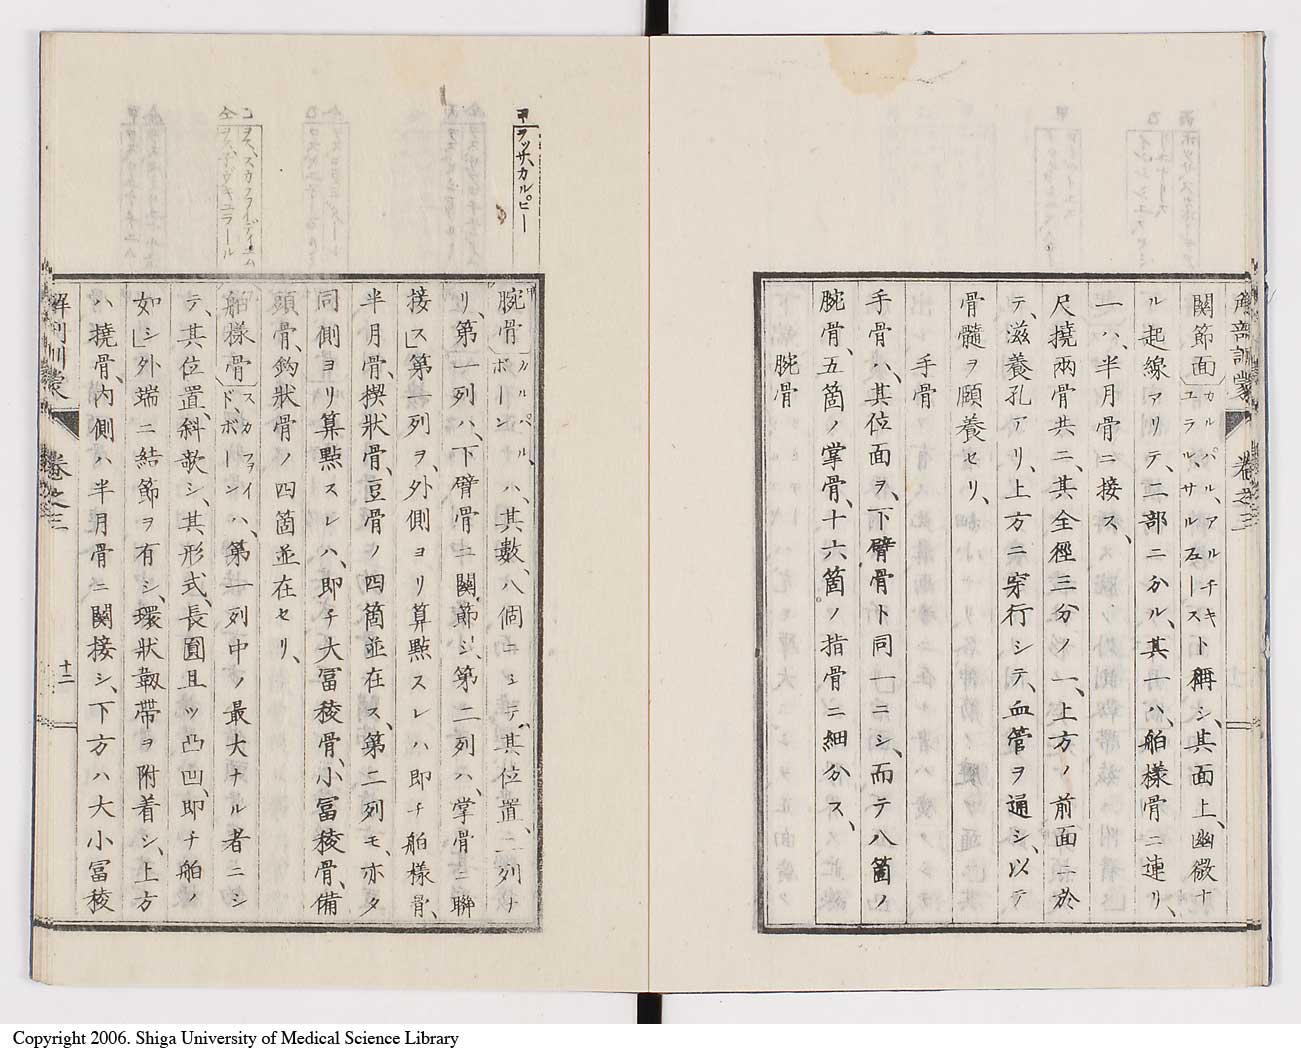 關節面 カルパール、アルチキ ユラル、サルフェース ト稱シ、其面上、幽微ナ
ル起線アリテ、二部ニ分ル、其一ハ、舶樣骨ニ連リ、
一ハ、半月骨ニ接ス、
尺撓兩骨共ニ、其全徑三分ノ一、上方ノ前面ニ於
テ、滋養孔アリ、上方ニ穿行シテ、血管ヲ通シ、以テ
骨髓ヲ頤養セリ、
手骨
手骨ハ、其位面ヲ、下臂骨ト同一ニシ、而テ八箇ノ
腕骨、五箇ノ掌骨、十六箇ノ指骨ニ細分ス、
腕骨
甲 ヲッサ、カルピー
甲 腕骨 カルパル、ボーン ハ、其數、八個ニシテ、其位置、二列ナ
リ、第一列ハ、下臂骨ニ關節シ、第二列ハ、掌骨ニ聯
接ス、第一列ヲ、外側ヨリ算點スレハ即チ舶樣骨、
半月骨、楔狀骨、豆骨ノ四箇並在ス、第二列モ、亦タ
同側ヨリ算點スレハ、即チ大冨稜骨、小冨稜骨、備
頭骨、鈎狀骨ノ四箇並在セリ、
舶樣骨 スカファイド、ボーン ハ、第一列中ノ最大ナル者ニシ
テ、其位置、斜欹シ、其形式、長圓且ツ凸凹、即チ舶ノ
如シ、外端ニ結節ヲ有シ、環狀靱帶ヲ附着シ、上方
ハ撓骨、內側ハ半月骨ニ關接シ、下方ハ大小冨稜
解剖訓蒙
卷之三
十二
Copyright 2006. Shiga University of Medical Science Library